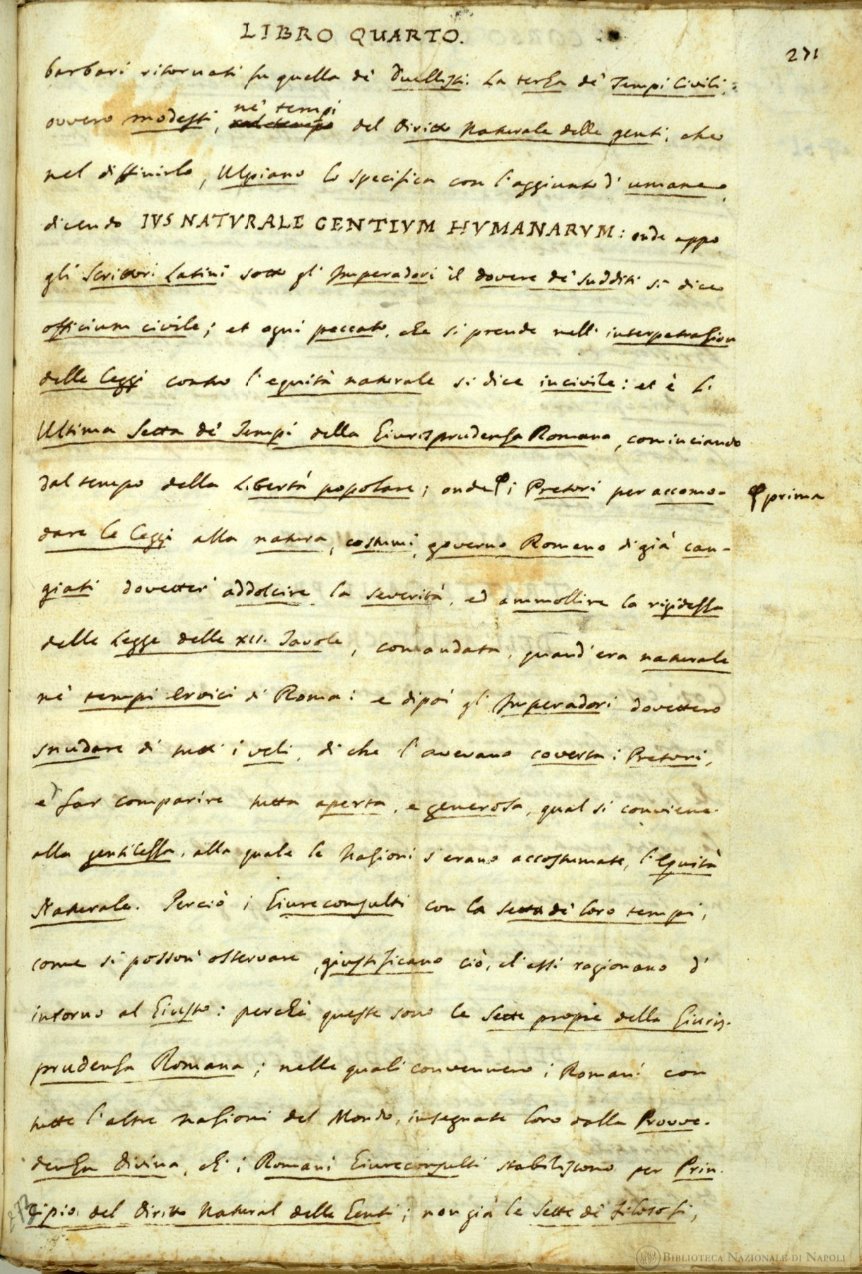 LIBRO QUARTO.
271
barbari ritornati fu quella de' Duellisti. La terza de' Tempi Civili,
ovvero modesti, ne' tempi del Diritto Naturale delle genti, che
nel diffinirlo, Ulpiano lo specifica con l'aggiunto d' umane,
dicendo IVS NATVRALE GENTIVM HVMANARVM: onde appo
gli Scrittori Latini sotto gl' Imperadori il dovere de' sudditi si dice
officium civile; et ogni peccato, che si prende nell' interpetrazion
delle Leggi contro l' equità naturale si dice incivile: et è l'
Ultima Setta de' Tempi della Giurisprudenza Romana, cominciando
dal tempo della Libertà popolare; onde φ i Pretori per accomo-
φ prima
dare le Leggi alla natura, costumi, governo Romano di già can-
giati dovetter' addolcire la severità, ed ammollire la rigidezza
delle Legge delle XII. Tavole, comandata, quand' era naturale
ne' tempi eroici di Roma: e dipoi gl' Imperadori dovettero
snudare di tutti i veli, di che l' avevano coverta i Pretori,
e far comparire tutta aperta, e generosa, qual si conviene
alla gentilezza, alla quale le Nazioni s' erano accostumate, l' Equità
Naturale. Perciò i Giureconsulti con la setta de' loro tempi,
come si posson' osservare, giustificano ciò, ch' essi ragionano d'
intorno al Giusto: perchè queste sono le Sette propie della Giuris-
prudenza Romana; nelle quali convennero i Romani con
tutte l' altre nazioni del Mondo, insegnate loro dalla Provve-
denza Divina, ch' i Romani Giureconsulti stabiliscono per Prin-
cipio del Diritto Natural delle Genti; non già le Sette de' Filosofi,
BIBLIOTECA NAZIONALE DI NAPOLI